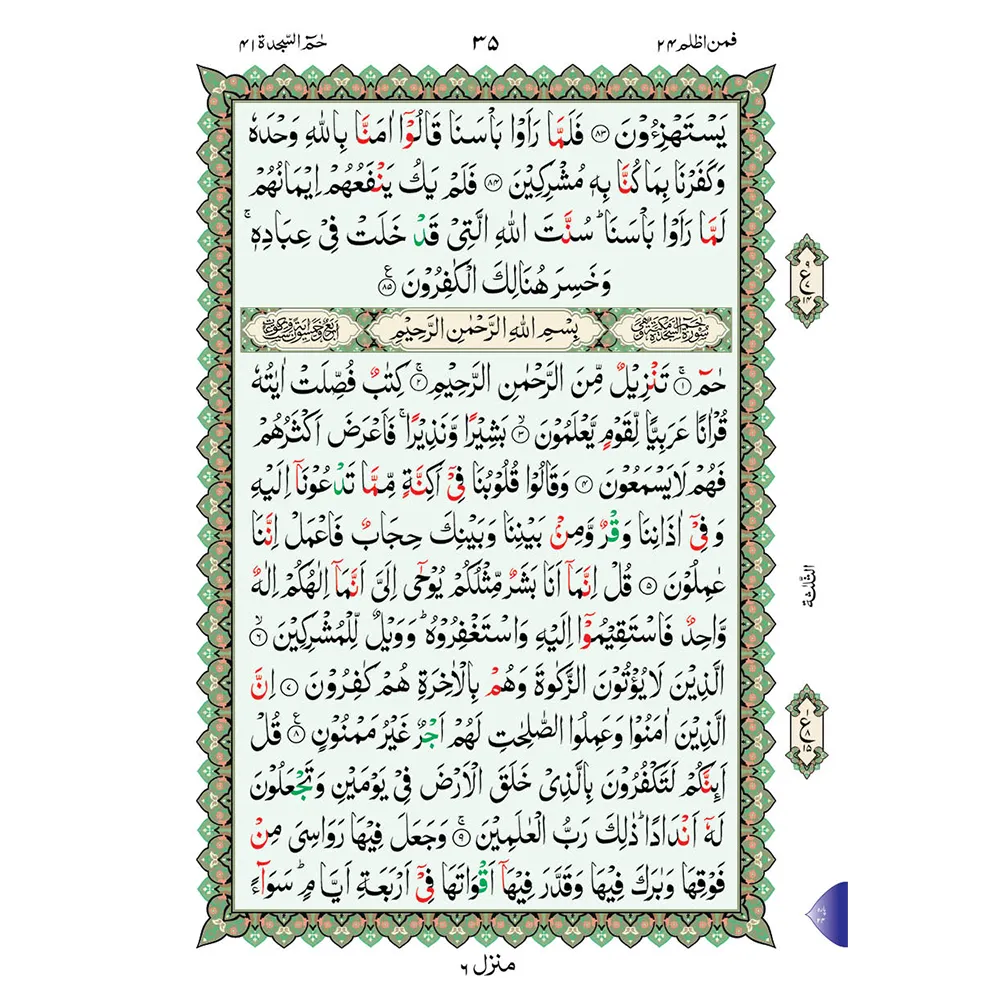 فمن اظلم ۲۴ ۳۵ حٰمٓ السّجدة ۴۱
يَسْتَهْزِءُوْنَ ۸۳ فَلَمَّا رَاَوْا بَاْسَنَا قَالُوْٓا اٰمَنَّا بِاللّٰهِ وَحْدَهٗ
وَكَفَرْنَا بِمَا كُنَّا بِهٖ مُشْرِكِيْنَ ۸۴ فَلَمْ يَكُ يَنْفَعُهُمْ اِيْمَانُهُمْ
لَمَّا رَاَوْا بَاْسَنَا ؕ سُنَّتَ اللّٰهِ الَّتِيْ قَدْ خَلَتْ فِيْ عِبَادِهٖ ۚ
وَخَسِرَ هُنَالِكَ الْكٰفِرُوْنَ ع ۸۵
ع ۹ ۱۴
بِسْمِ اللّٰهِ الرَّحْمٰنِ الرَّحِيْمِ
حٰمٓ ۚ ۱ تَنْزِيْلٌ مِّنَ الرَّحْمٰنِ الرَّحِيْمِ ۚ ۲ كِتٰبٌ فُصِّلَتْ اٰيٰتُهٗ
قُرْاٰنًا عَرَبِيًّا لِّقَوْمٍ يَّعْلَمُوْنَ ۙ ۳ بَشِيْرًا وَّنَذِيْرًا ۚ فَاَعْرَضَ اَكْثَرُهُمْ
فَهُمْ لَا يَسْمَعُوْنَ ۴ وَقَالُوْا قُلُوْبُنَا فِيْٓ اَكِنَّةٍ مِّمَّا تَدْعُوْنَآ اِلَيْهِ
وَ فِيْٓ اٰذَانِنَا وَقْرٌ وَّمِنْۢ بَيْنِنَا وَبَيْنِكَ حِجَابٌ فَاعْمَلْ اِنَّنَا
عٰمِلُوْنَ ۵ قُلْ اِنَّمَآ اَنَا بَشَرٌ مِّثْلُكُمْ يُوْحٰٓى اِلَيَّ اَنَّمَآ اِلٰهُكُمْ اِلٰهٌ
وَّاحِدٌ فَاسْتَقِيْمُوْٓا اِلَيْهِ وَاسْتَغْفِرُوْهُ ؕ وَوَيْلٌ لِّلْمُشْرِكِيْنَ ۙ ۶
الَّذِيْنَ لَا يُؤْتُوْنَ الزَّكٰوةَ وَهُمْ بِالْاٰخِرَةِ هُمْ كٰفِرُوْنَ ۷ اِنَّ
الَّذِيْنَ اٰمَنُوْا وَعَمِلُوا الصّٰلِحٰتِ لَهُمْ اَجْرٌ غَيْرُ مَمْنُوْنٍ ع ۸ قُلْ
ع ۱ ۸ ۱۵
اَئِنَّكُمْ لَتَكْفُرُوْنَ بِالَّذِيْ خَلَقَ الْاَرْضَ فِيْ يَوْمَيْنِ وَتَجْعَلُوْنَ
لَهٗٓ اَنْدَادًا ؕ ذٰلِكَ رَبُّ الْعٰلَمِيْنَ ۚ ۹ وَجَعَلَ فِيْهَا رَوَاسِيَ مِنْ
فَوْقِهَا وَبٰرَكَ فِيْهَا وَقَدَّرَ فِيْهَآ اَقْوَاتَهَا فِيْٓ اَرْبَعَةِ اَيَّامٍ ؕ سَوَآءً
منزل ۶